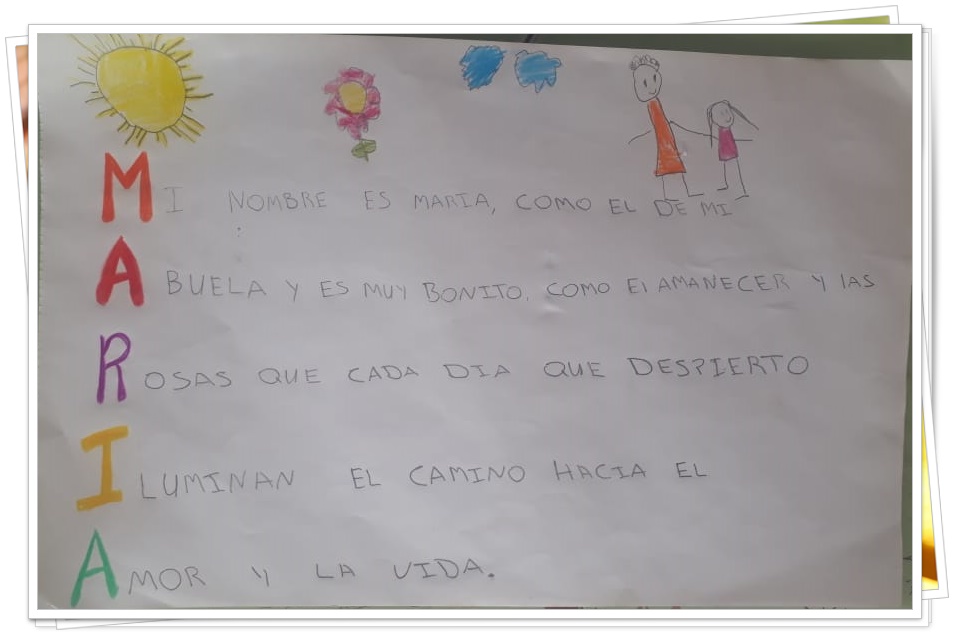 MI NOMBRE ES MARIA, COMO EL DE MI
ABUELA Y ES MUY BONITO, COMO El AMANECER Y lAS
ROSAS QUE CADA DIA QUE DESPIERTO
ILUMINAN EL CAMINO HACIA EL
AMOR Y LA VIDA.